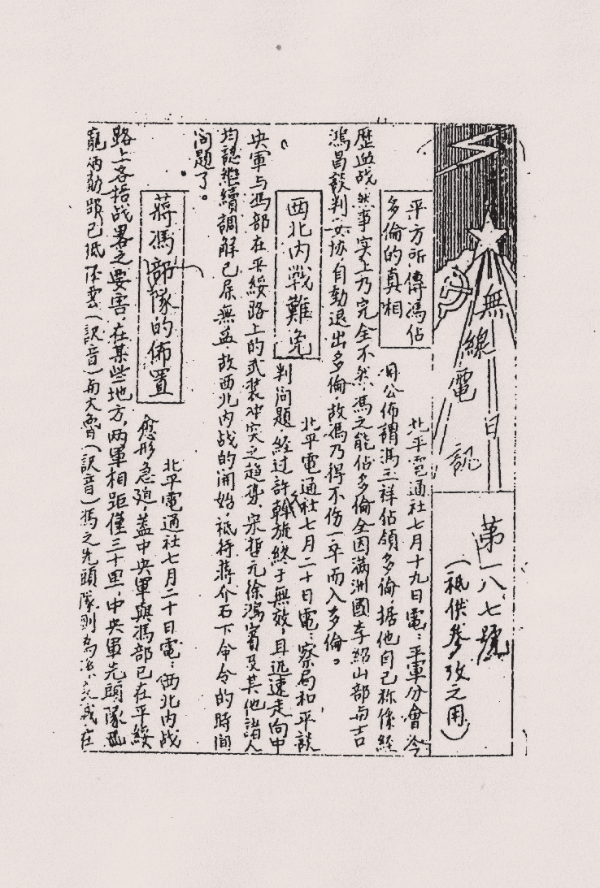 無線電日訊
第一八七號
(祗供參攷之用)
平方所傳馮佔
多倫的真相
北平電通社七月十九日電：平軍分會今
公佈謂馮玉祥佔領多倫據他自己称係經
歷血战 然事实上乃完全不然馮之能佔多倫全因滿洲國李紹山部与吉
鴻昌談判妥协自動退出多倫，故馮乃得不伤一卒而入多倫。
西北內戰難免
北平電通社七月二十日電：察局和平談
判问题，經过許斡旋，終于無效，且迅速走向中
央軍与馮部在平綏路上的武装冲突之趋势，宋哲元徐鴻賓及其他諸人
均認継續調解已屬無益，故西北内战的開始，祗待蔣介石下命令的時間
问题了。
蔣馮部隊的佈置
北平電通社七月二十日電：西北内战
愈形急迫，蓋中央軍與馮部已在平綏
路上各据战畧之要害，在某些地方，两軍相距僅三十里，中央軍先頭隊
龐炳勛部已抵 (訳音)与大 (訳音)馮之先頭隊則為 在